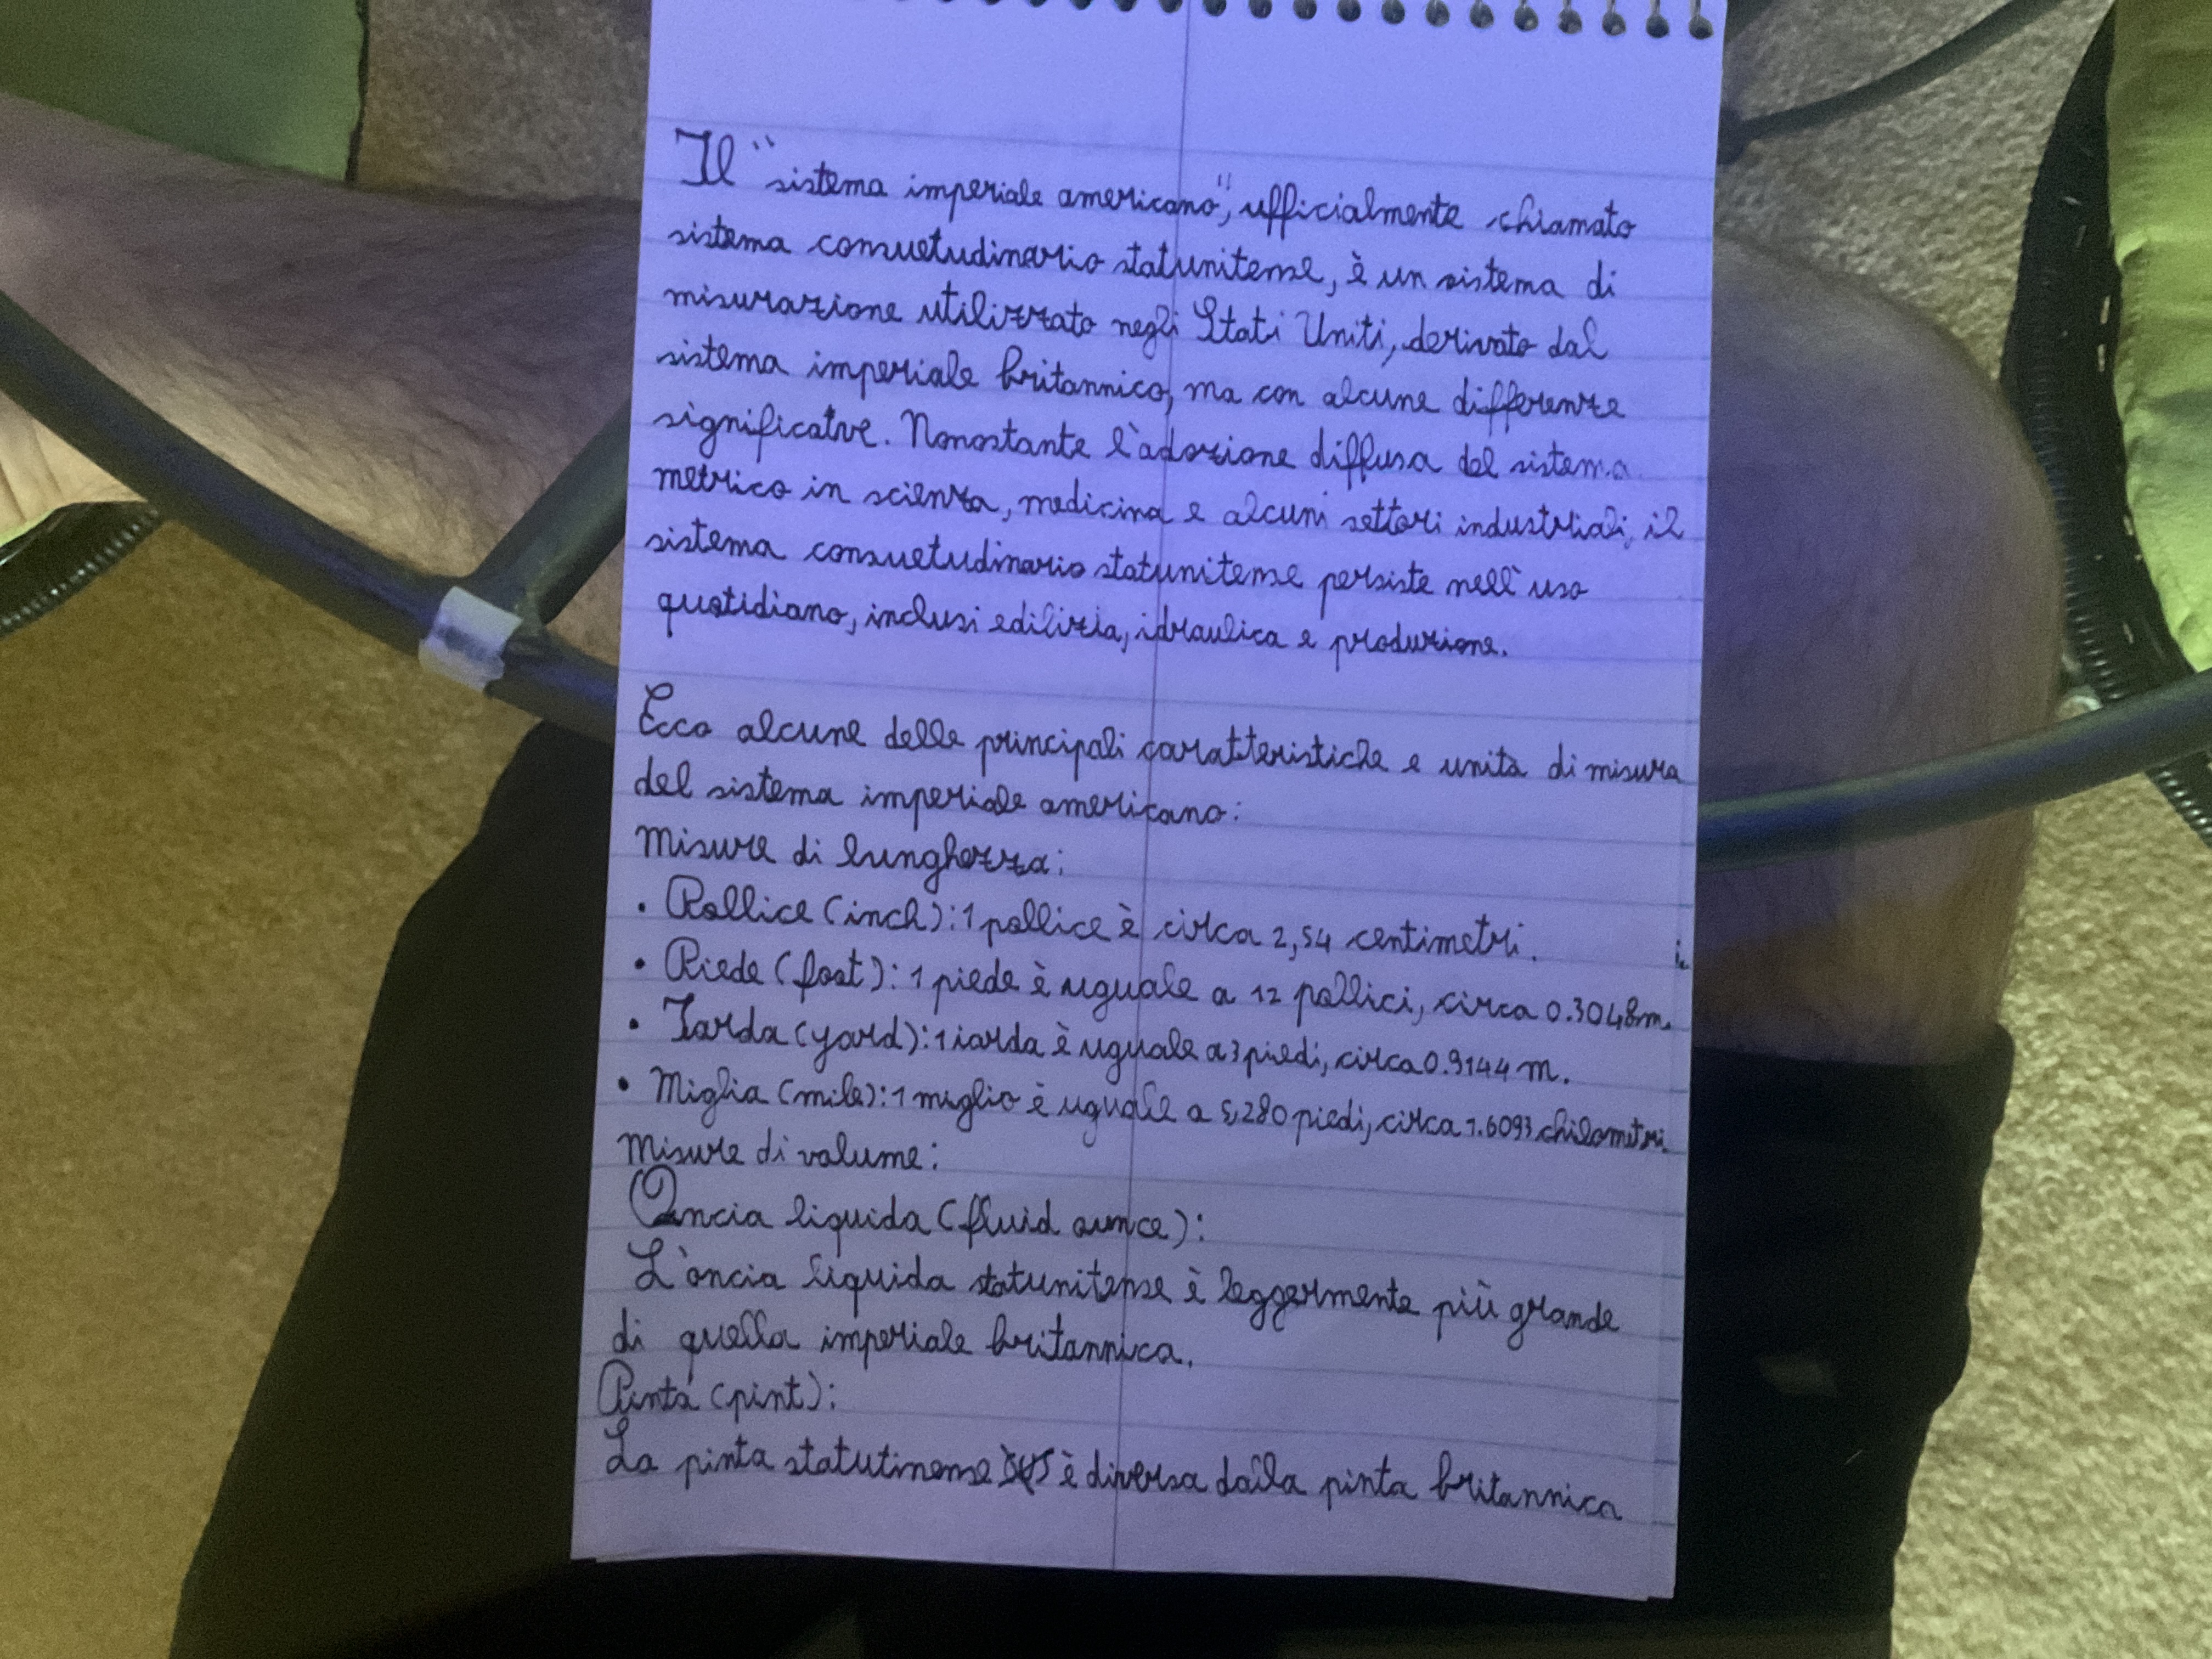 Il "sistema imperiale americano", ufficialmente chiamato
sistema consuetudinario statunitense, è un sistema di
misurazione utilizzato negli Stati Uniti, derivato dal
sistema imperiale britannico, ma con alcune differenze
significatve. Nonostante l'adozione diffusa del sistema
metrico in scienza, medicina e alcuni settori industriali, il
sistema consuetudinario statunitense persiste nell'uso
quotidiano, inclusi edilizia, idraulica e produzione.
Ecco alcune delle principali caratteristiche e unità di misura
del sistema imperiale americano:
Misure di lunghezza:
• Pollice (inch): 1 pollice è circa 2,54 centimetri.
• Piede (foot): 1 piede è uguale a 12 pollici, circa 0.3048m.
• Iarda (yard): 1 iarda è uguale a 3 piedi, circa 0.9144 m.
• Miglia (mile): 1 miglio è uguale a 5,280 piedi, circa 1.6093 chilometri.
Misure di volume:
Oncia liquida (fluid ounce):
L'oncia liquida statunitense è leggermente più grande
di quella imperiale britannica.
Pinta (pint):
La pinta statutinense è diversa dalla pinta britannica